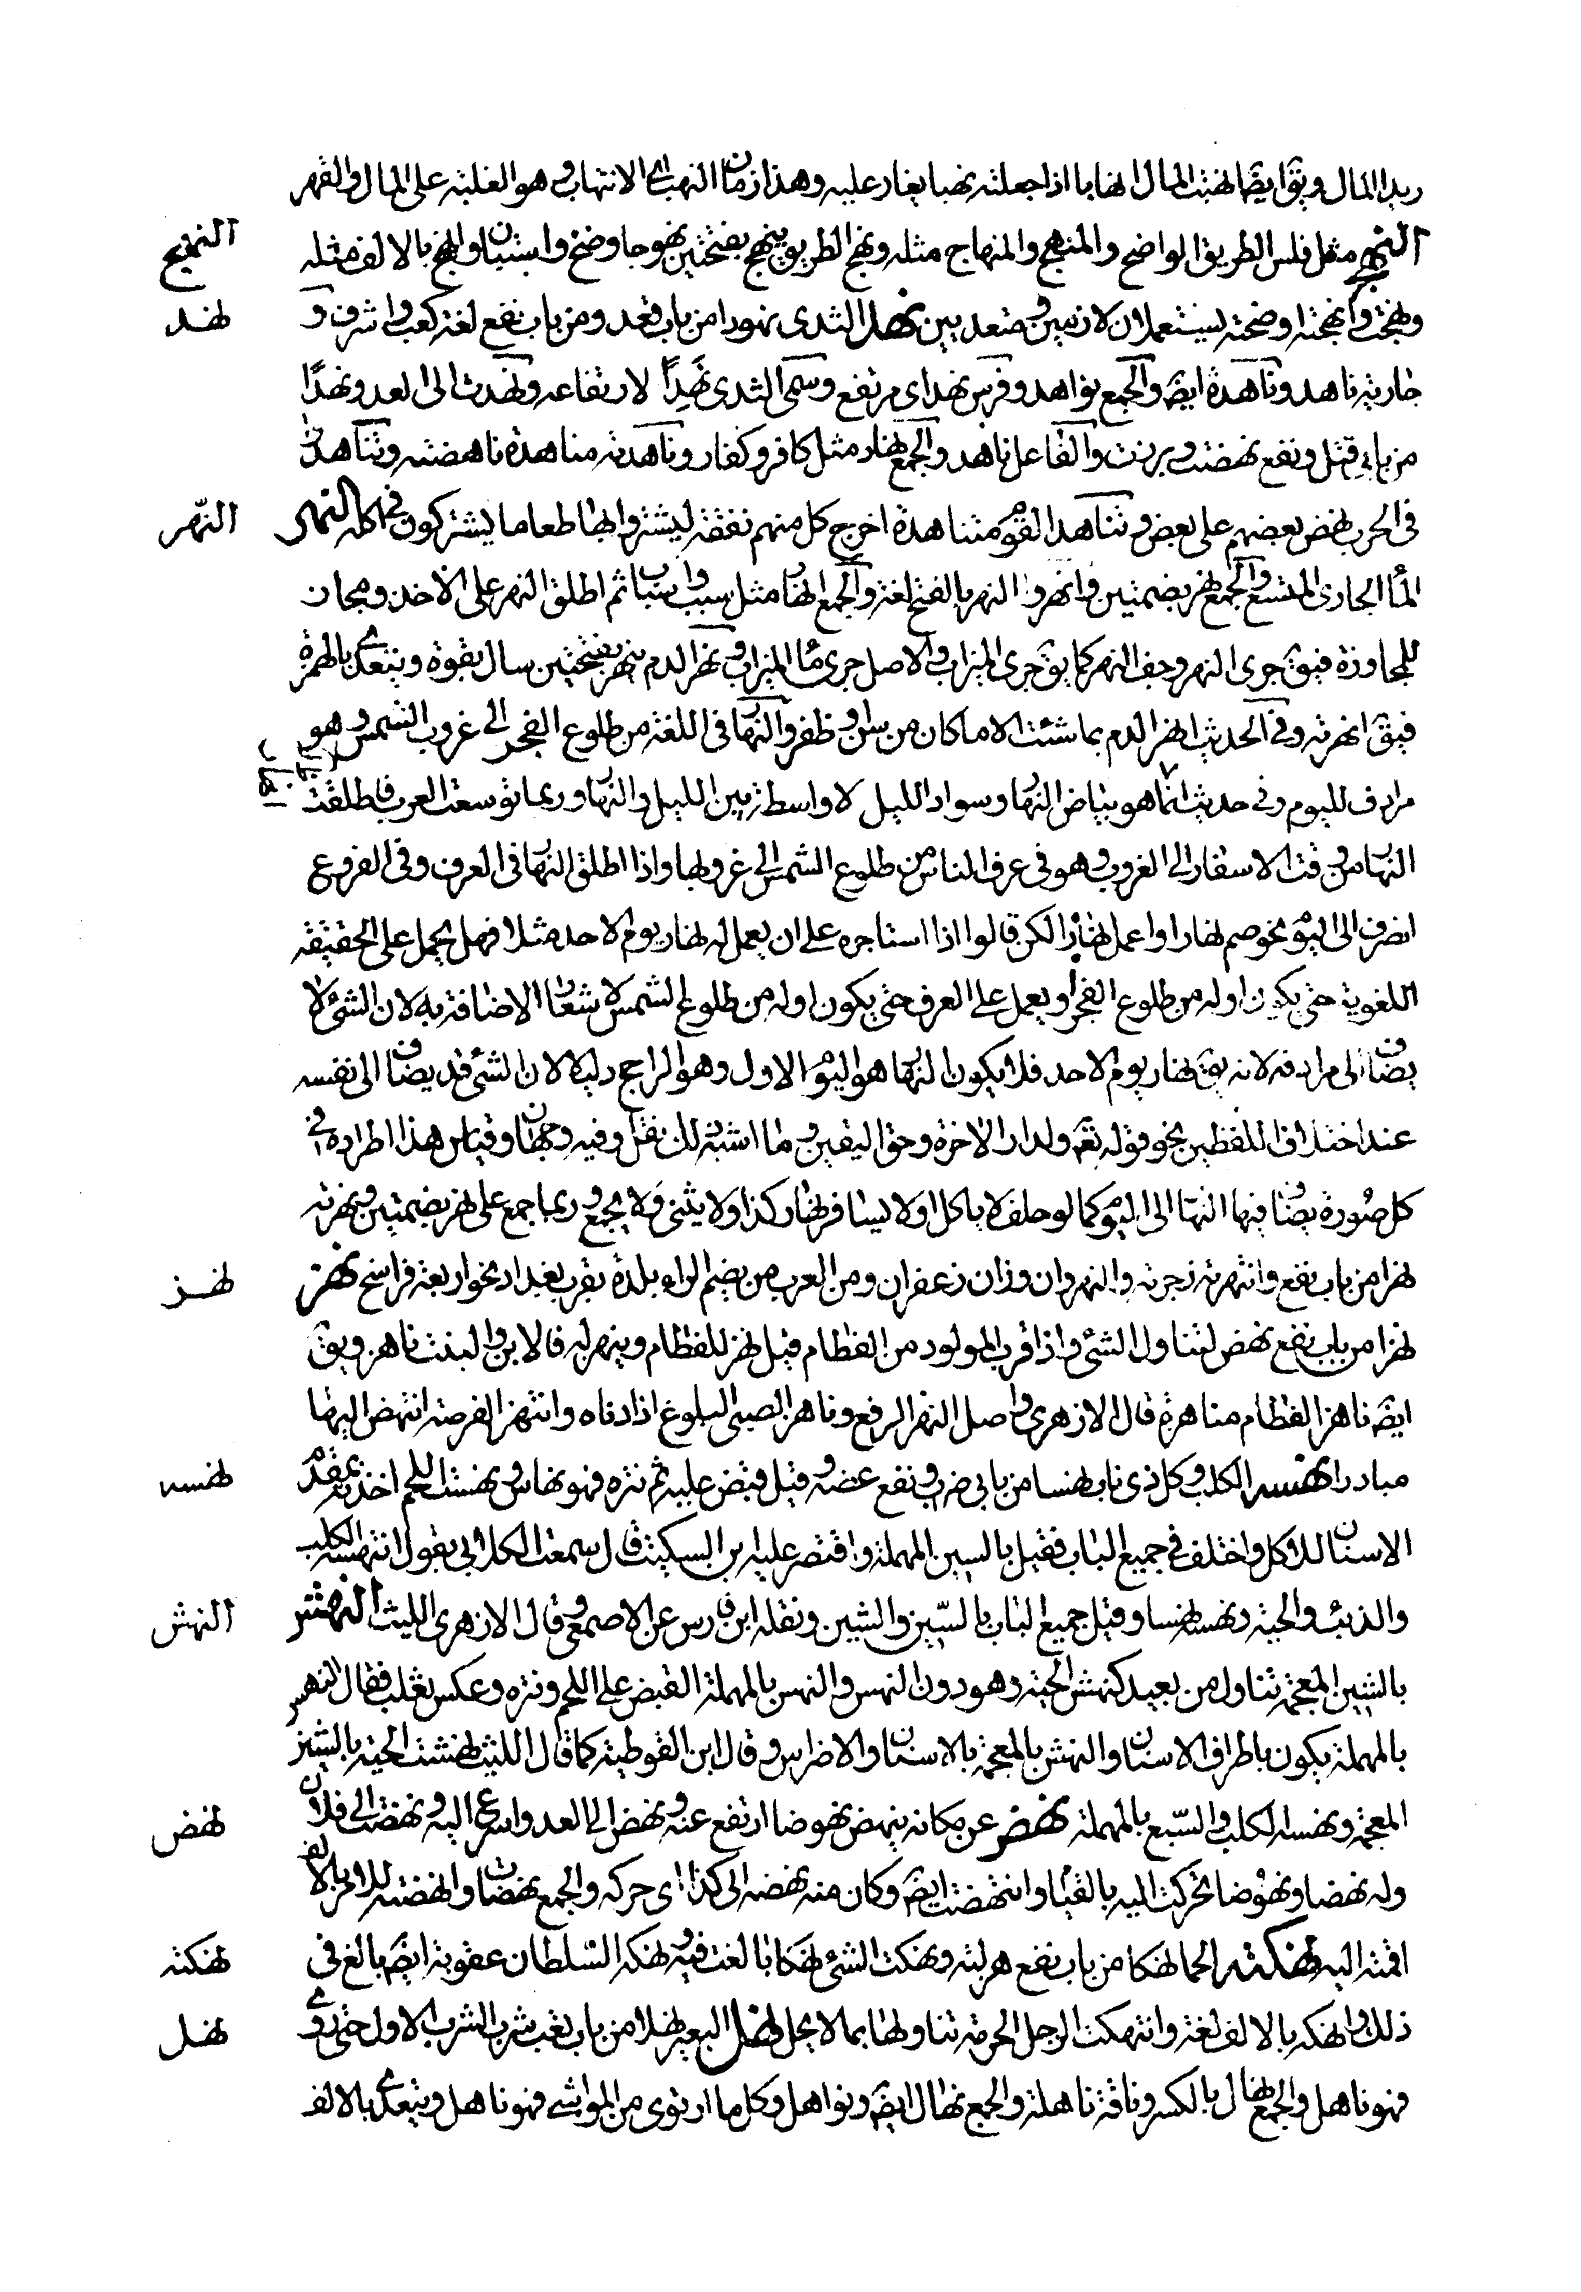 زيد المال ويق ايضا انهبت المال انهابا اذا جعلته نهبا يغار عليه وهذا زمان النهب اى الانتهاب وهو الغلبة على المال والقهر
النهج مثل فلس الطريق الواضح والمنهج والمنهاج مثله ونهج الطريق ينهج بفتحتين نهوجا وضح واستبان وانهج بالالف مثله
النهج
ونهجته وانهجته اوضحته يستعملان لازمين ومتعديين نهد الثدى نهودا من باب قعد ومن باب نفع لغة كعب واشرف و
نهد
جارية ناهد وناهدة ايضا والجمع نواهد وفرس نهد اى مرتفع وسمى الثدى نهدا لارتفاعه ونهدت الى العدو نهدا
من باب قتل ونفع نهضت وبرزت والفاعل ناهد والجمع نهاد مثل كافر وكفار وناهدته مناهدة ناهضته وتناهدوا
فى الحرب نهض بعضهم على بعض وتناهد القوم مناهدة اخرج كل منهم نفقة ليشتروا بها طعاما يشتركون فى اكله النهر
النهر
الماء الجارى المتسع والجمع نهر بضمتين وانهر والنهر بالفتح لغة والجمع انهار مثل سبب واسباب ثم اطلق النهر على الاخدود مجازا
للمجاورة فيق جرى النهر وجف النهر كما يق جرى الميزاب والاصل جرى ماء الميزاب ونهر الدم ينهر بفتحتين سال بقوة ويتعدى بالهمزة
فيق انهرته وفى الحديث انهر الدم بما شئت الا ما كان من سن او ظفر والنهار فى اللغة من طلوع الفجر الى غروب الشمس وهو
مرادف لليوم وفى حديث انما هو بياض النهار وسواد الليل لا واسطة بين الليل والنهار وربما توسعت العرب فاطلقت
النهار من وقت الاسفار الى الغروب وهو فى عرف الناس من طلوع الشمس الى غروبها واذا اطلق النهار فى العرف وفى الفروع
انصرف الى اليوم نحو صم نهارا او اعمل نهارا لكن قالوا اذا استاجره على ان يعمل له نهار يوم الاحد مثلا فهل يحمل على الحقيقة
اللغوية حتى يكون اوله من طلوع الفجر او يحمل على العرف حتى يكون اوله من طلوع الشمس لاشعار الاضافة به لان الشئ لا
يضاف الى مرادفه لانه يق نهار يوم الاحد فلا يكون النهار هو اليوم الاول وهو الراجح دليلا لان الشئ قد يضاف الى نفسه
عند اختلاف اللفظين نحو قوله تعم ولدار الاخرة وحق اليقين وما اشبه ذلك نقل وفيه وجهان وقياس هذا اطراده فى
كل صورة يضاف فيها النهار الى اليوم كما لو حلف لا ياكل او لا يسافر نهار كذا ولا يثنى ولا يجمع وربما جمع على نهر بضمتين ونهرته
نهرا من باب نفع وانتهرته زجرته والنهروان وزان زعفران ومن العرب من يضم الراء بلدة بقرب بغداد نحو اربعة فراسخ نهز
نهز
نهزا من باب نفع نهض لتناول الشئ واذا قرب المولود من الفطام قيل نهز للفطام وينهز له فالابن والبنت ناهز ويق
ايضا ناهز الفطام مناهزة قال الازهرى واصل النهز الرفع وناهز الصبى البلوغ اذا دناه وانتهز الفرصة انتهض اليها
مبادرا نهسه الكلب وكل ذى ناب نهسا من بابى ضرب ونفع عضه وقيل قبض عليه ثم نتره فهو نهاس ونهست اللحم اخذته بمقدم
نهسه
الاسنان للاكل واختلف فى جميع الباب فقيل بالسين المهملة واقتصر عليه ابن السكيت قال سمعت الكلابى يقول انتهسه الكلب
والذئب والحية ونهسه نهسا وقيل جميع الباب بالسين والشين ونقله ابن فارس عن الاصمعى وقال الازهرى الليث النهش
النهش
بالشين المعجمة تناول من بعيد كنهش الحية وهو دون النهس والنهس بالمهملة القبض على اللحم ونتره وعكس ثعلب فقال النهس
بالمهملة يكون باطراف الاسنان والنهش بالمعجمة بالاسنان والاضراس وقال ابن القوطية كما قال الليث نهشت الحية بالشين
المعجمة ونهسه الكلب والسبع بالمهملة نهض عن مكانه ينهض نهوضا ارتفع عنه ونهض الى العدو اسرع اليه ونهضت الى فلان
نهض
وله نهضا ونهوضا تحركت اليه بالقيام وانتهضت ايضا وكان منه نهضة الى كذا اى حركة والجمع نهضات وانهضته للامر بالالف
اقمته اليه نهكته الحمى نهكا من باب نفع هزلته ونهكت الشئ نهكا بالغت فيه ونهكه السلطان عقوبة ايضا بالغ فى
نهكته
ذلك وانهكه بالالف لغة وانتهكت الرجل الحرمة تناولها بما لا يحل نهل البعير نهلا من باب تعب شرب الشرب الاول حتى روى
نهل
فهو ناهل والجمع نهال بالكسر وناقة ناهلة والجمع نهال ايضا ونواهل وكل ما ارتوى من المواشى فهو ناهل ويتعدى بالالف